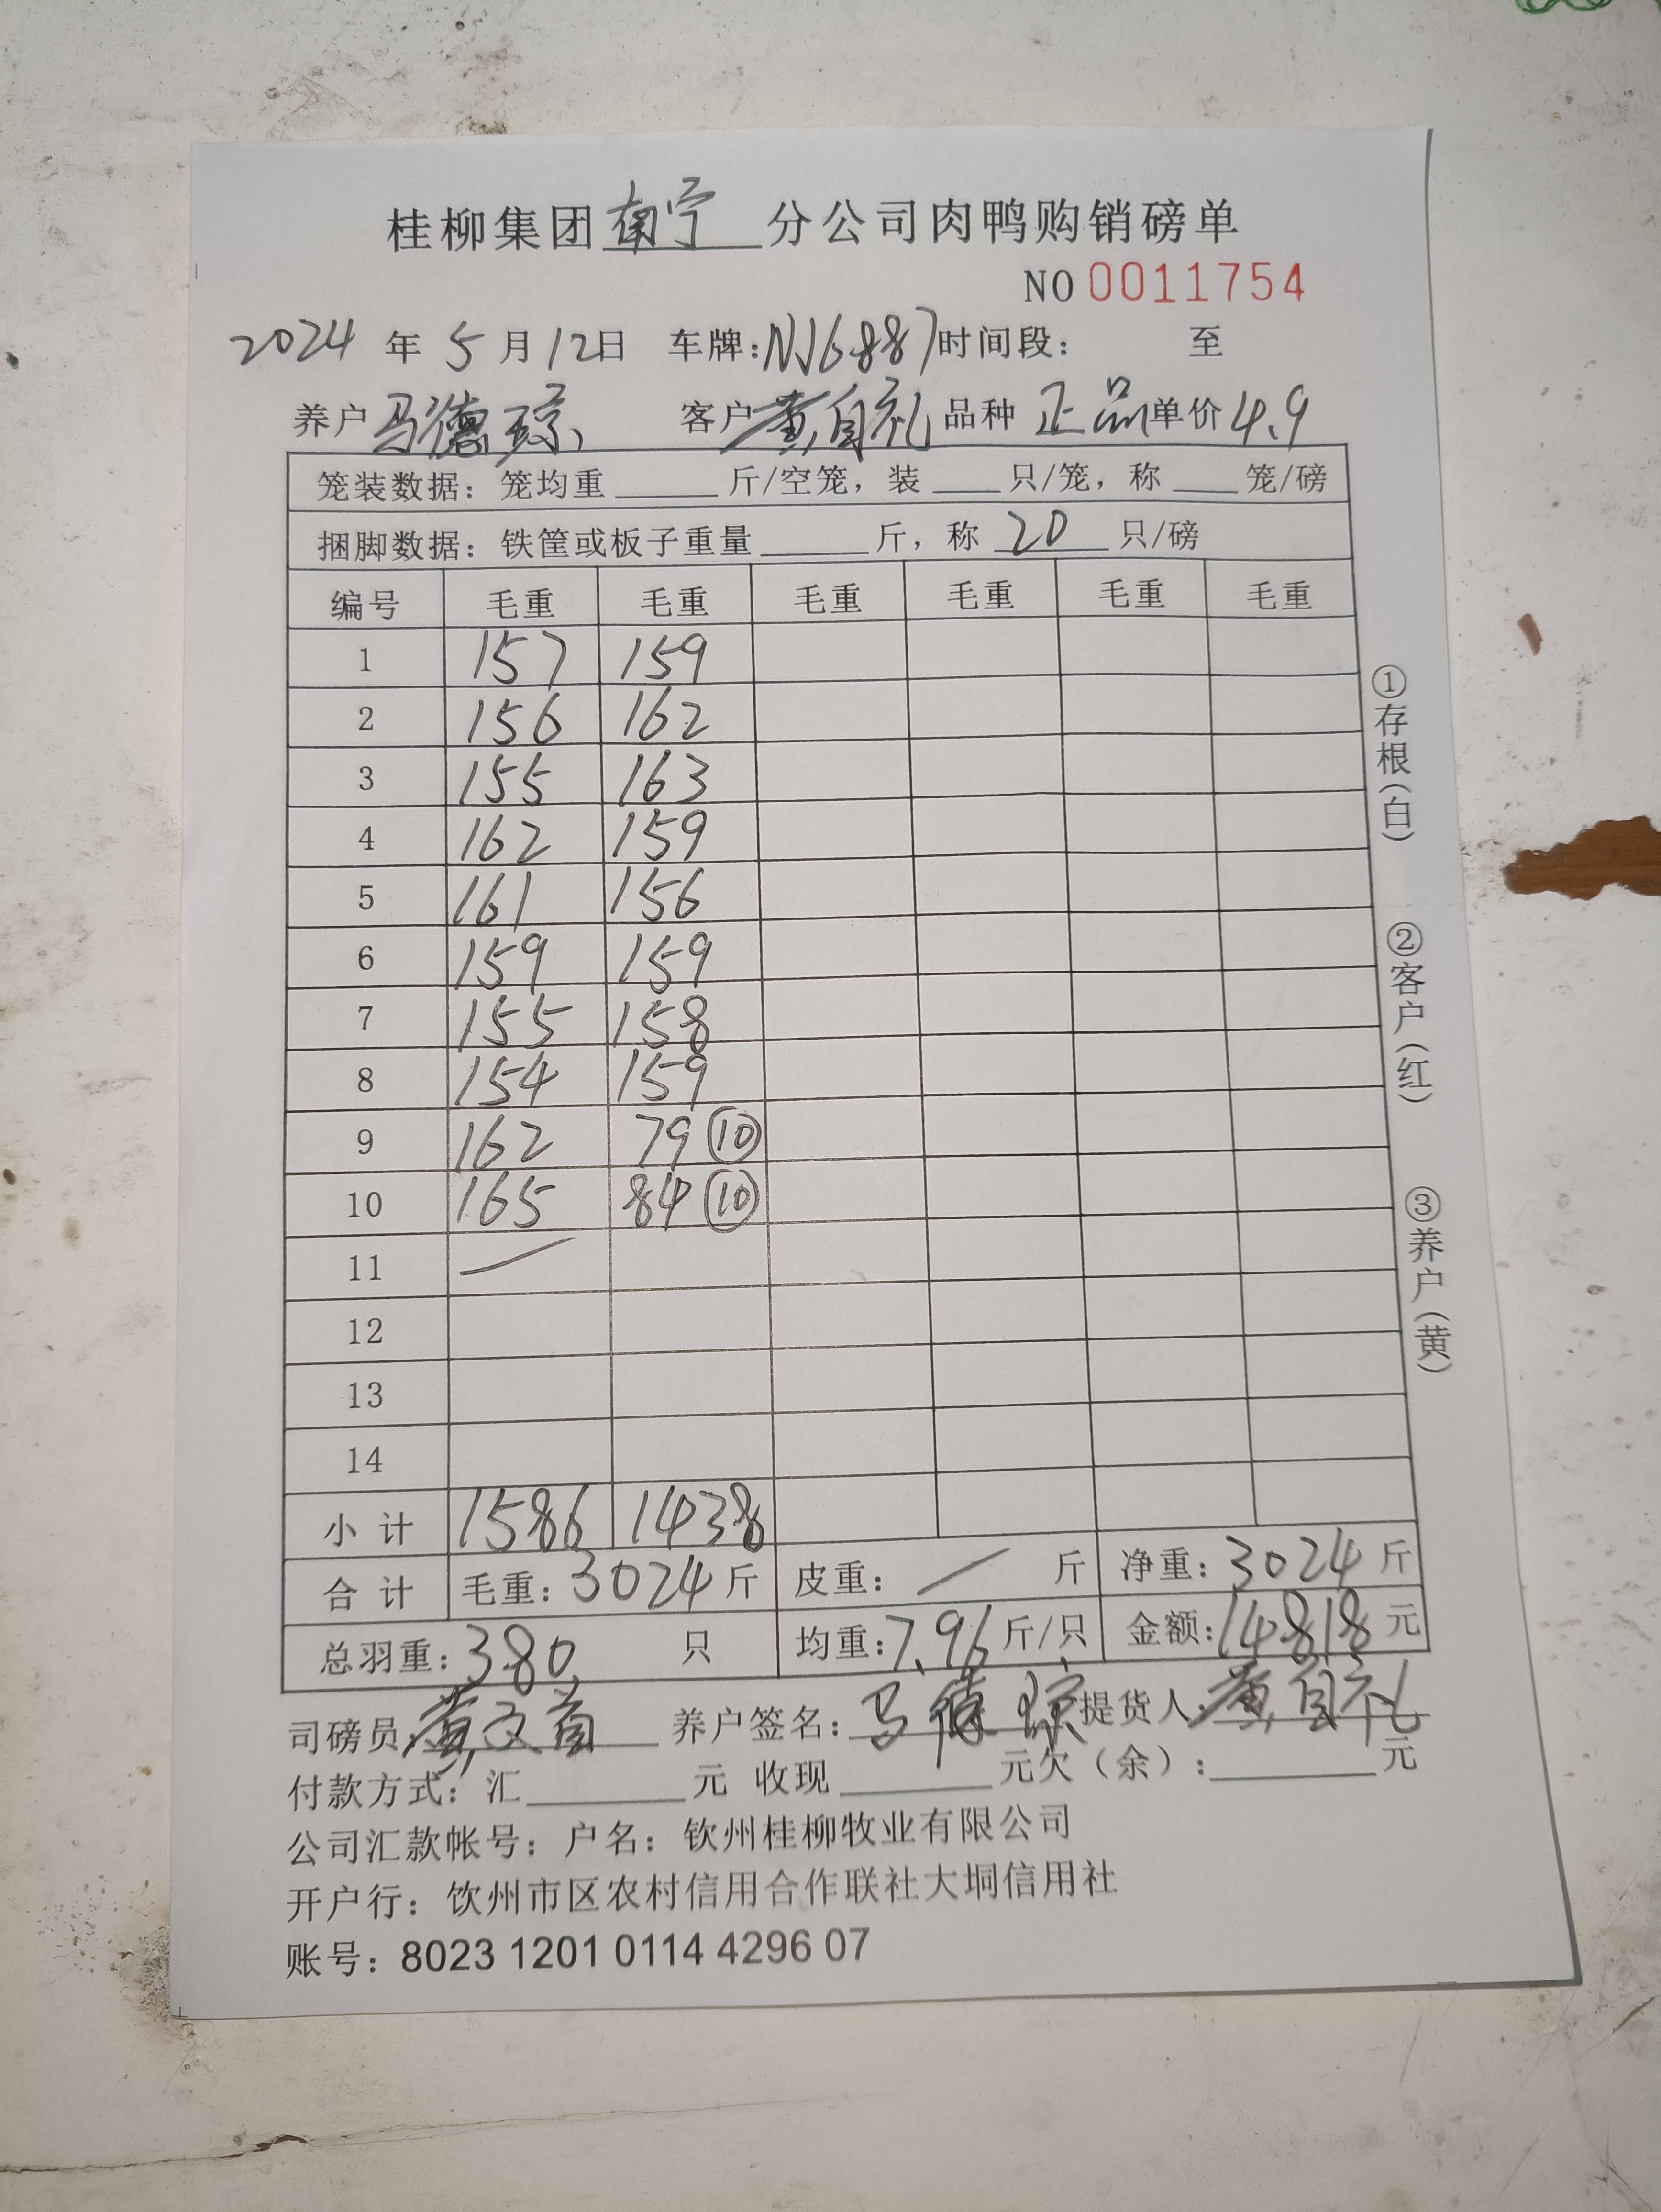 桂柳集团南宁分公司肉鸭购销磅单
NO 0011754
2024 年 5 月 12日 车牌:NJ6887 时间段: 至
养户 马德琼 客户 黄自礼 品种 正品 单价 4.9
笼装数据: 笼均重 斤/空笼, 装 只/笼, 称 笼/磅
捆脚数据: 铁筐或板子重量 斤, 称 20 只/磅
编号 毛重 毛重 毛重 毛重 毛重 毛重
1 157 159
2 156 162
3 155 163
4 162 159
5 161 156
6 159 159
7 155 158
8 154 159
9 162 79 ⑩
10 165 84 ⑩
11
12
13
14
小 计 1586 1438
合 计 毛重: 3024 斤 皮重: 斤 净重: 3024 斤
总羽重: 380 只 均重: 7.96 斤/只 金额: 14818 元
司磅员: 黄文首 养户签名: 马德琼 提货人: 黄自礼
付款方式: 汇 元 收现 元欠(余): 元
公司汇款帐号: 户名: 钦州桂柳牧业有限公司
开户行: 钦州市区农村信用合作联社大垌信用社
账号: 8023 1201 0114 4296 07
①存根(白)
②客户(红)
③养户(黄)